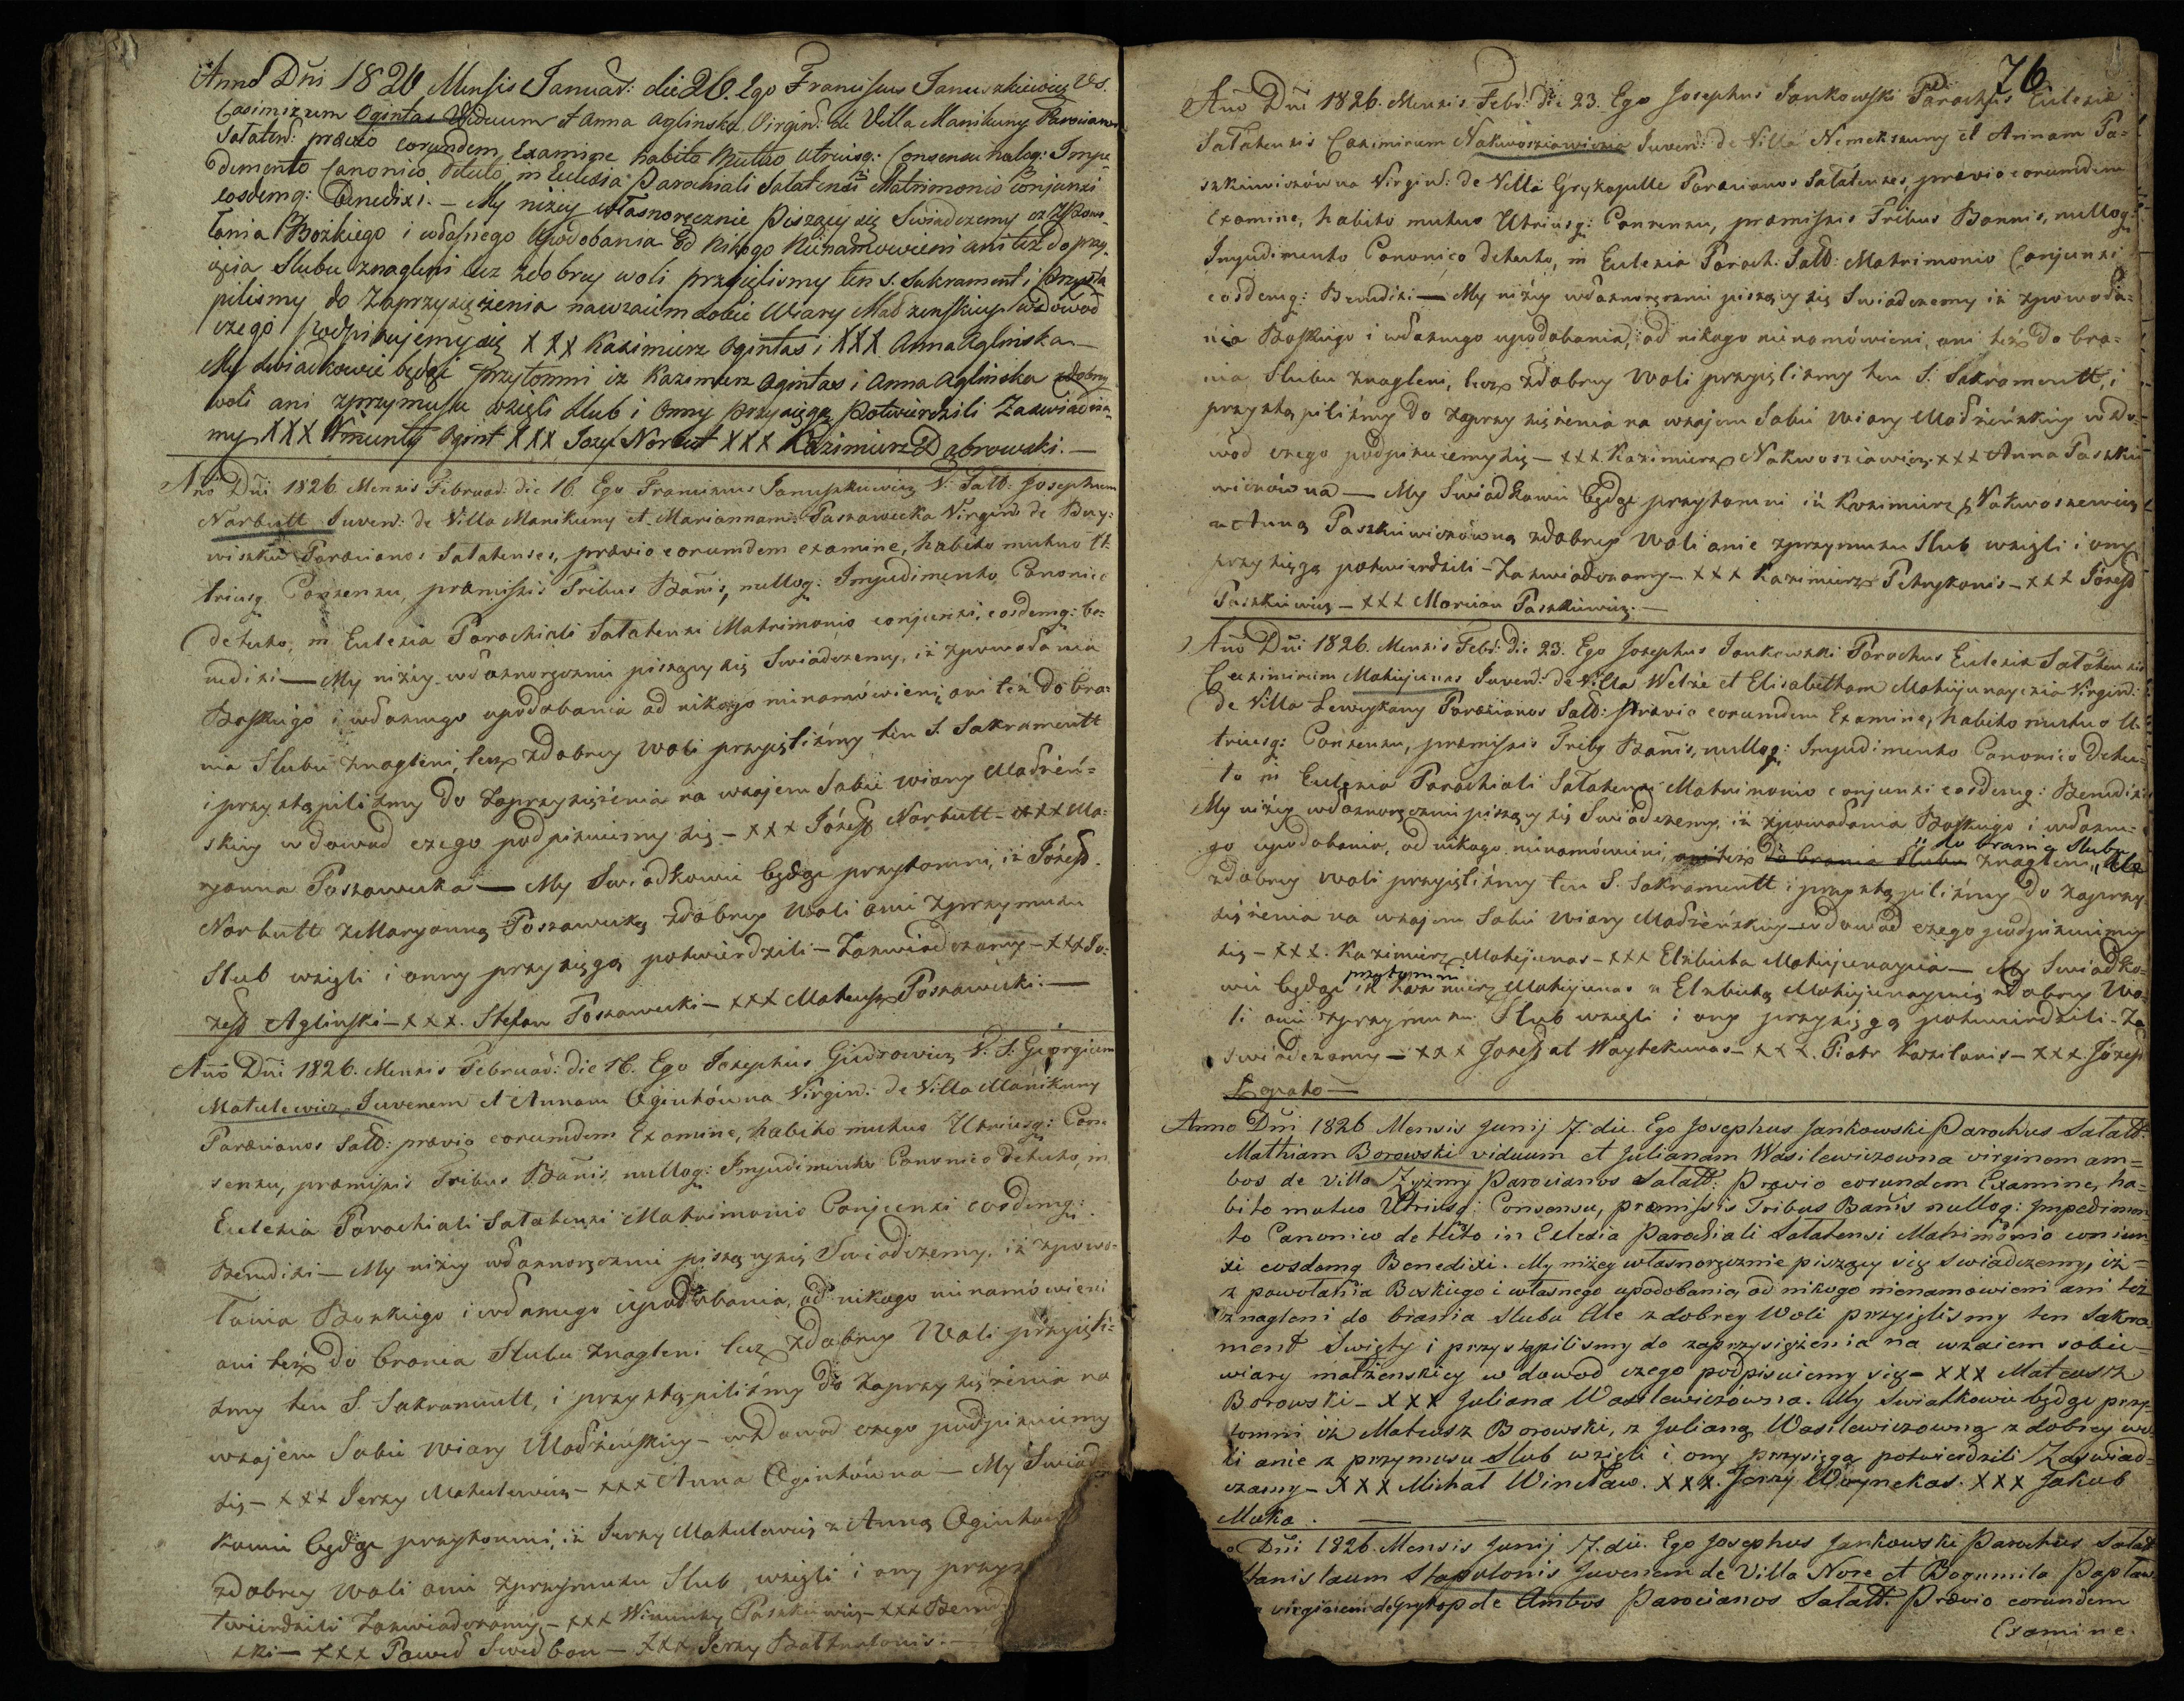 Anno Dñi 1826 Mensis Januar: die 26. Ego Franciscus Januszkiewicz
Casimirum Ogintas Viduum et Anna Aglinska Virgin: de Villa Manikuny Parocianos
Sałaten: prævio eorundem Examine habito Mutuo Utriusq: Consensu nulog: Impe
dimento Canonico Detuto in Eclesia Parochiali Sałatensi Matrimonio Conjunxi
eosdemq: Benedixi. – My niżey własnoręcznie Piszący się Swiadczemy iż zPowo-
łania Bozkiego i własnego Upodobania Od nikogo Nienamowieni ani też do przy-
ięcia Slubu znagleni lecz zdobrey woli przyięlismy ten S. Sakrament i Przystą
pilismy do Zaprzysiężenia nawzaiem sobie Wiary Małzenskiey wdowod
czego Podpisujemy się XXX Kazimierz Ogintas i XXX Anna Aglinska –
My swiadkowie będąc Przytomni iz Kazimierz Ogintas i Anna Aglinska zdobrey
woli ani zprzymusu wzieli slub i Onny Przysięgą Potwierdzili Zaswiadcza
my XXX Wincenty Ogint XXX Jozef Norbut XXX Kazimierz Dąbrowski. –
Año Dñi 1826. Mensis Februar: die 16. Ego Franciscus Januszkiewicz V. Sałt: Josephum
Narbutt Juven: de Villa Manikuny et Mariannam Paszawecka Virgin: de Buy-
wiszku Parocianos Sałatenses, prævio eorumdem examine, habito mutuo U-
triusq Consensu, præmissis Tribus Bañis, nulloq: Impedimento Canonico
detuto, in Eclesia Parochiali Sałatensi Matrimonio conjunxi, eosdemq: be-
nedixi – My niżey własnoręcznie piszący się Swiadczemy, iż zpowołania
Boskiego i własnego upodobania od nikogo nienamówieni, ani też do bra-
nia Slubu znagleni, lecz zdobrey Woli przyięliśmy ten S. Sakramentt
i przystąpiliśmy do Zaprzysiężenia na wzajem Sobie wiary Małżeń-
skiey wdowod czego podpisuiemy się – xxx Józeff Norbutt – xxx Ma-
ryanna Poszawecka – My Swiadkowie będąc przytomni, iż Józeff
Norbutt zMaryanną Poszawecką zdobrey Woli ani zprzymusu
Slub wzięli i onny przysięgą potwierdzili – Zaswiadczamy – xxx Jo-
zeff Aglinski – xxx. Stefan Poszawecki – xxx Mateusz Poszawecki. –
Año Dñi 1826. Mensis Februar: die 16. Ego Josephus Giedrowicz V. S. Georgium
Matulewicz Juvenem et Annam Ogintówna Virgin: de Villa Manikuny
Parocianos Sałt: prævio eorumdem Examine, habito mutuo Utriusq: Con-
sensu, præmissis Tribus Bañis nulloq: Impedimento Canonico detuto, in
Eclesia Parochiali Sałatenzi Matrimonio Conjunxi eosdemq:
Benedixi – My niżey własnoręcznie piszący się Swiadczemy, iż zpowo-
łania Bozkiego i własnego upodobania, od nikogo nienamówieni
ani też do brania Slubu znagleni lecz zdobrey Woli przyięli-
smy ten S. Sakramentt, i przystąpiliśmy do Zaprzysiężenia na
wzajem Sobie Wiary Małżeńskiey – wdowod czego podpisuiemy
się – xxx Jerzy Matulewicz – xxx Anna Ogintówna – My Swiad
kowie będąc przytomni, iż Jerzy Matulewicz z Anną Ogintów
zdobrey Woli ani zprzymusu Slub wzięli i ony przys
twierdzili Zaswiadczamy – xxx Wincenty Paszkiewicz – xxx Bened
ski – xxx Paweł Swełbou – xxx Jerzy Baltrulonis. –
76
Año Dñi 1826. Mensis Febr: die 23. Ego Josephus Jankowski Parochus Eclesiæ
Sałatensis Casimirum Nakwosziewicza Juven: de Villa Nemekszuny et Annam Pa-
szkiewiczówna Virgin: de Villa Grykapulle Parocianos Sałatenses, prævio eorumdem
Examine, habito mutuo Utriusq: Consensu, præmissis Tribus Bannis, nulloq
Impedimento Canonico detuto, in Eclesia Paroch: Sałt: Matrimonio Conjunxi
eosdemq: Benedixi – My niżey własnoręcznie piszący się Swiadczemy iż zpowoła-
nia Boskiego i własnego upodobania, od nikogo nienamówieni, ani też do bra-
nia Slubu znagleni, lecz zdobrey Woli przyięliśmy ten S. Sakramentt, i
przystąpiliśmy do Zaprzysiężenia na wzajem Sobie Wiary Małżeńskiey wdo-
wod czego podpisuiemy się – xxx Kazimierz Nakwosziewicz xxx Anna Paszkie
wiczówna – My Swiadkowie będąc przytomni iż Kazimierz Nakwoszewicz
z Anną Paszkiewiczówną zdobrey Woli anie zprzymusu Slub wzięli i ony
przysięgą potwierdzili – Zaswiadczamy – xxx Kazimierz Petrykonis – xxx Józeff
Paszkiewicz – xxx Marcian Paszkiewicz. –
Año Dñi 1826. Mensis Febr: die 23. Ego Josephus Jankowski Parochus Eclesiæ Sałatensis
Casimirum Matiejunas Juven: de Villa Welże et Elisabetham Matiejunaycia Virgin:
de Villa Lewykany Parocianos Sałt: Prævio eorumdem Examine, habito mutuo U-
triusq: Consensu, præmissis Tribq Bañis, nulloq: Impedimento Canonico Detu-
to in Eclesia Parochiali Sałatensi Matrimonio conjunxi eosdemq: Benedixi
My niżey własnoręcznie piszący się Swiadczemy, iż zpowołania Boskiego i własne-
go upodobania, od nikogo nienamówieni, ani też do brania Slubu znagleni, Ale
do brania slubu
zdobrey Woli przyięliśmy ten S. Sakramentt i przystąpiliśmy do Zaprzy
siężenia na wzajem Sobie Wiary Małżeńskiey – wdowod czego podpisuiemy
się – xxx. Kazimierz Matiejunas – xxx Elzbieta Matiejunaycia – My Swiadko-
przytomni
wie będąc iż Kazimierz Matiejunas z Elzbietą Matiejunaycią zdobrey Wo-
li ani zprzymusu Slub wzięli i ony przysięgą potwierdzili – Za
swiadczamy – xxx Jozeffat Waytekunas – xxx. Piotr Kazilonis – xxx. Józeff
Legato –
Anno Dñi 1826 Mensis Junij 7. die. Ego Josephus Jankowski Parochus Sałatt:
Mathiam Borowski viduum et Julianam Wasilewiczowna virginem am-
bos de Villa Zyżmy Parocianos Sałatt: Prævio eorundem Examine, ha-
bito mutuo Utriusq: Consensu, præmissis Tribus Bañis nulloq: Impedimen
to Canonico detteto in Eclesia Parochiali Sałatensi Matrimonio coniun
xi eosdemq Benedixi. My niżey własnoręcznie piszący się swiadczemy, iż
z powołania Boskiego i własnego upodobania, od nikogo nienamowieni ani też
znagleni do brania slubu Ale z dobrey Woli przyięlismy ten Sakra-
ment Swięty i przystąpilismy do zaprzysiężenia na wzaiem sobie
wiary małżenskiey w dowod czego podpisuiemy się – xxx Mateusz
Borowski – xxx Juliana Wasilewiczówna. My swiatkowie będąc przy-
tomni iż Mateusz Borowski, z Julianą Wasilewiczowną z dobrey wo
li anie z przymusu Slub wzięli i ony przysięgą potwierdzili Zaswiad-
czamy – XXX Michał Wincław. XXX. Jerzy Woynekas. XXX Jakub
Muka.
o Dñi 1826. Mensis Junij 7. die. Ego Josephus Jankowski Parochus Sałat
Stanisłaum Stapulonis Juvenem de Villa Nore et Bogumiła Papław
virginem de Grykop de Ambos Parocianos Sałatt. Prævio eorundem
Examine.